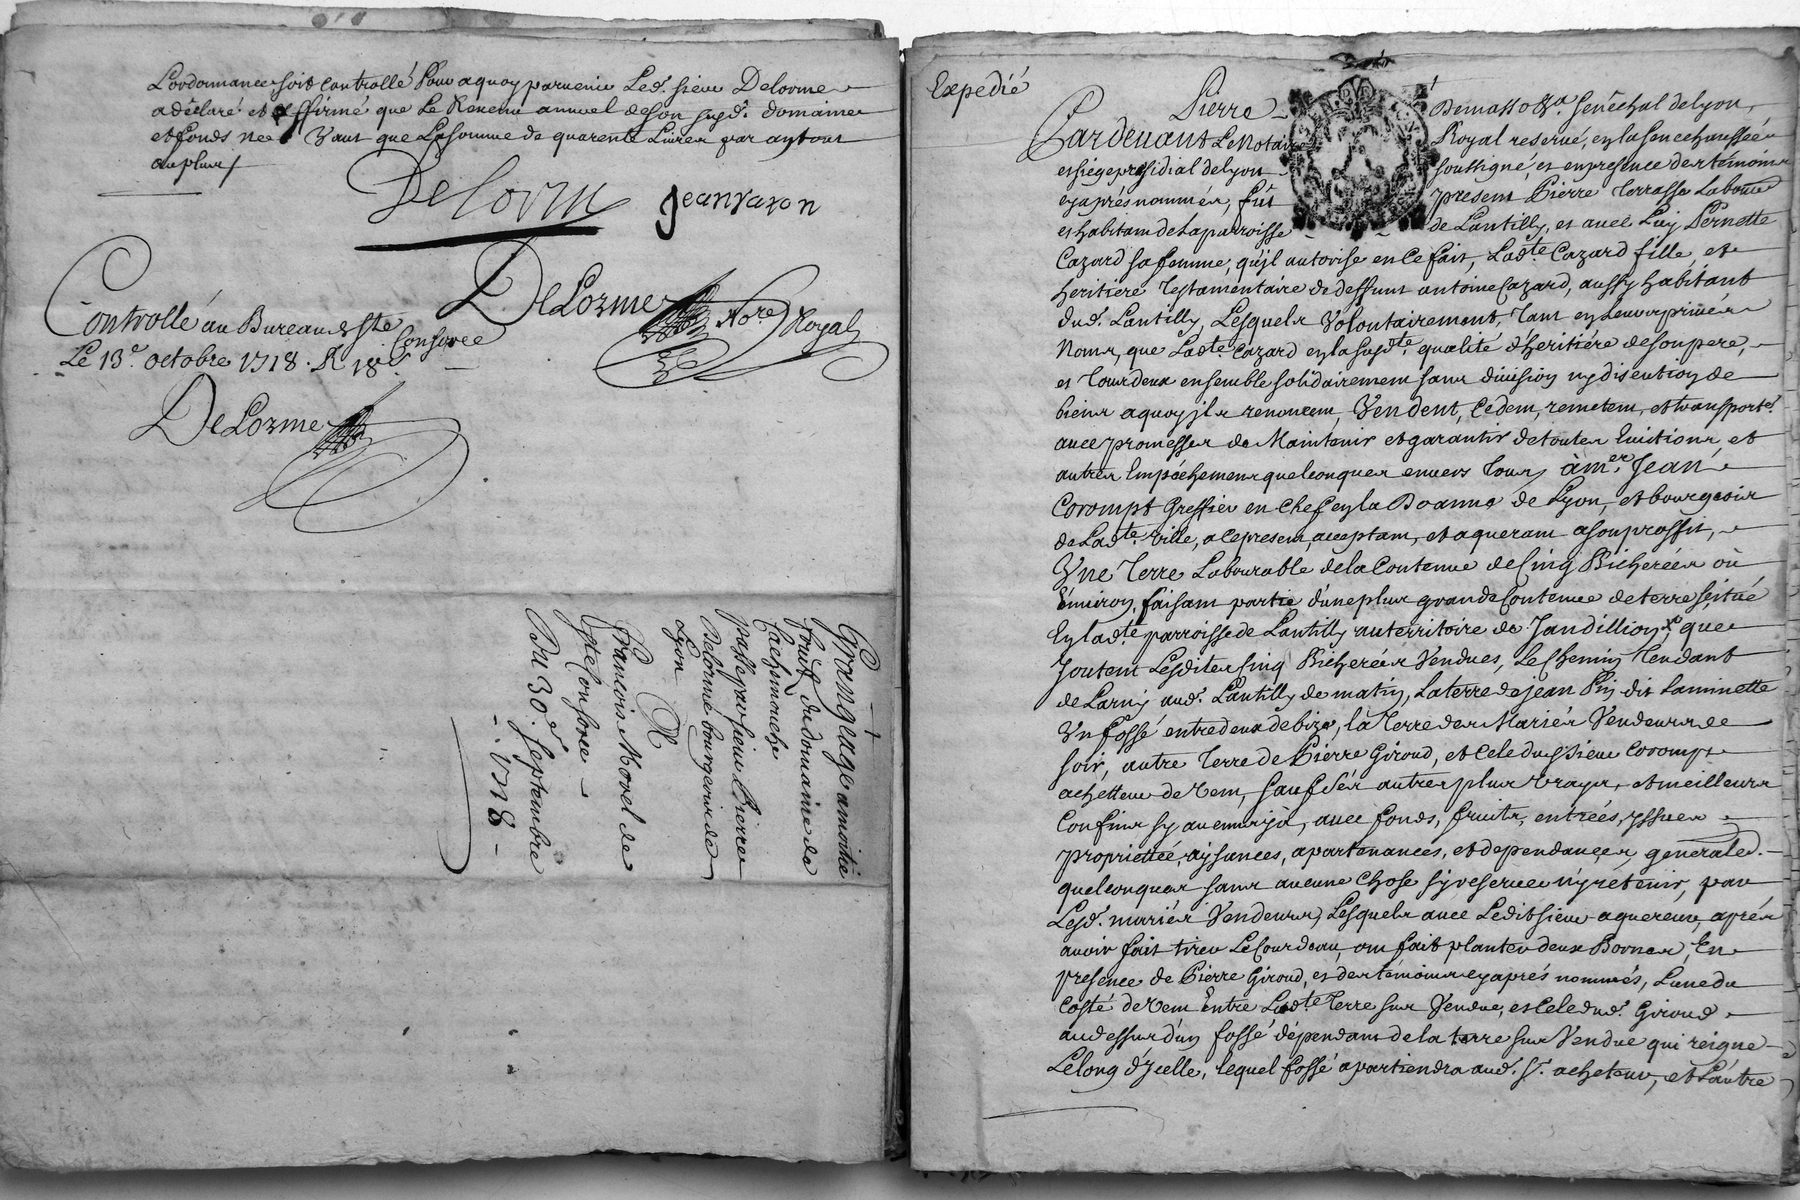 L'ordonnance soit Controllé Pour aquoy parvenir Led. sieur Delorme
a déclaré et affirmé que Le Revenu annuel de son susd. domaine
et fonds ne Vaut que La somme de quarente Livres par an tout
au plus /
Delorm jeanvaron
DeLorme No.re Royal
Controllé au Bureau de Ste Consorce
Le 13.e octobre 1718. R 18.s
DeLorme
Grangeage a moitié
fruits du domaine de
passé par sieur Pierre
Delorme bourgeois de
Lyon
A
François Morel de
Ste Consorce -
Du 30.e Septembre
- 1718 -
Expedié
Pierre Demasso Sénéchal de Lyon,
Pardevant Le Notaire Royal reservé, en la senechaussée
et siége présidial de Lyon soussigné, et en presence des témoins
cy aprés nommés, fut present Pierre Terrasse Laboureur
et habitant de la parroisse de Lantilly, et avec Luy Pernette
Cazard sa femme, qu'jl autorise en Ce fait, Lad.te Cazard fille, et
heritiere Testamentaire de deffunt antoine Cazard, aussy habitant
dud. Lantilly, Lesquels Volontairement, Tant en Leurs privés
Noms, que Lad.te Cazard en la susd.te qualité d'héritiére de son pere,
et Tous deux ensemble solidairement sans division ny discution de
biens a quoy jls renoncent, Vendent, Cedent, remetent, et transporte.t
avec promesses de Maintenir et garantir de toutes Evictions et
autres Empéchemens quelconques envers Tous, à m.er Jean
Corompt Greffier en Chef en la Doanne de Lyon, et bourgeois
de Lad.te Ville, a Ce present, acceptant, et aquerant a son proffit,
Vne Terre Labourable de la Contenue de Cinq Bicherées où
Environ, faisant partie d'une plus grande Contenue de terre scituée
En lad.te parroisse de Lantilly au territoire de Jandillion, que
Joutent Lesdites Cinq Bicherées Vendues, Le Chemin Tendant
de Larny aud. Lantilly de matin, La terre de jean Pin dit Laminette
Vn fossé entredeux de bize, la Terre des Mariés Vendeurs de
soir, autre Terre de Pierre Giroud, et Cele dud. Sieur Corompt
achetteur de Vent, sauf Ses autres plus Vrays, et meilleurs
Confins sy aucuns y à, avec fonds, fruits, entrées, yssues
proprietée, aysances, apartenances, et dependances generaled.
quelconques sans aucune Chose s'y reserver n'y rétenir, par
Lesd. mariés Vendeurs, Lesquels avec Ledit sieur aquereur, aprés
avoir fait tirer Le Courdeau, ont fait planter deux Bornes, En
presence de Pierre Giroud, et des témoins cy aprés nommés, L'une du
Costé de Vent Entre Lad.te Terre sus Vendue, et Cele dud. Giroud
au dessus d'un fossé dépendant de la terre sus Vendue qui reigne
Le long d'Jcelle, lequel fossé apartiendra aud. S.r acheteur, et L'autre